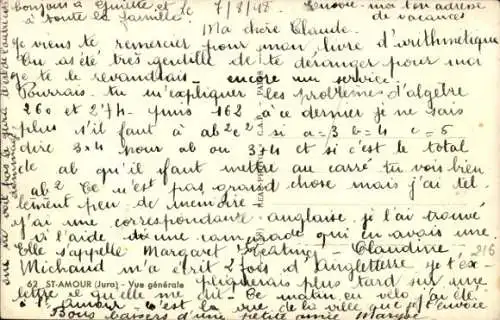 bonjour à Ginette et le 7/8/48. Envoie-moi ton adresse
à toute la famille. de vacances
Ma chère Claude.
Je viens te remercier pour mon livre d'arithmétique
Tu as été très gentille de te déranger pour moi
je te le revaudrais - encore un service.
Pourrais-tu m'expliquer les problèmes d'algèbre
260 et 274 - puis 162 à ce dernier je ne sais
plus s'il faut à ab²c² si a=3 b=4 c=5
dire 3x4 pour ab ou 34 et si c'est le total
de ab qu'il faut mettre au carré tu vois bien
ab² Ce n'est pas grand chose mais j'ai tel-
lement peu de mémoire
j'ai une correspondante anglaise je l'ai trouvé
à l'aide d'une camarade qui en avais une
Elle s'appelle Margaret Keating - Claudine
Michaud m'a écrit 2 fois d'Angleterre je t'ex-
62 ST-AMOUR (Jura) - Vue générale
216
pliquerais plus tard sur une
lettre ce qu'elle me dit - Ce matin en vélo j'ai été
à St Amour c'est la vue de la ville que je t'envoie
Bons baisers d'une petite amie